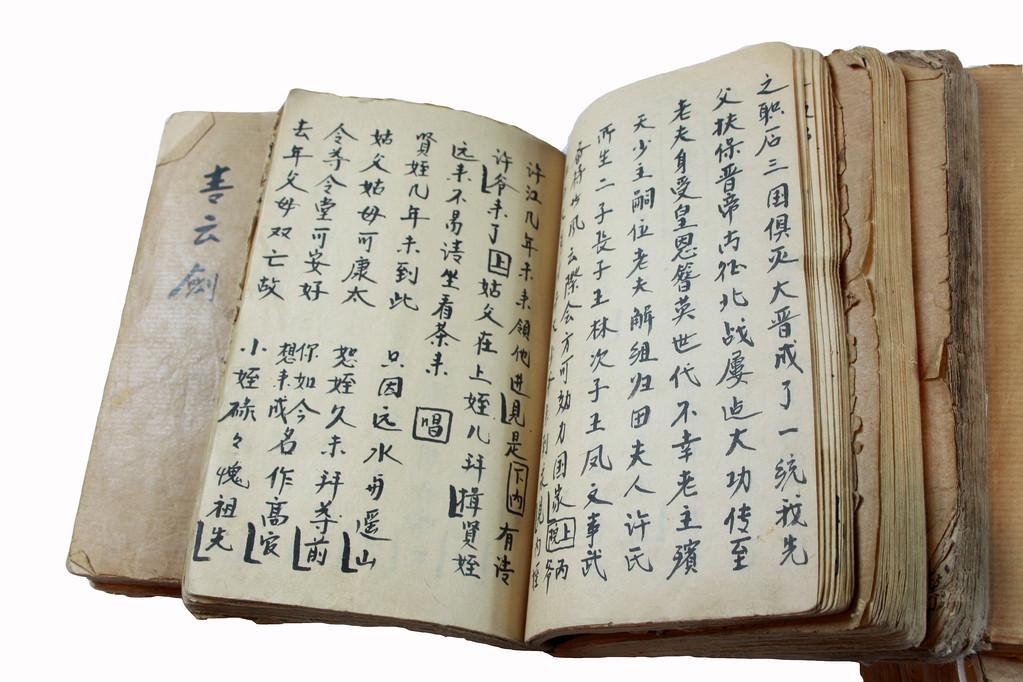 之职后三国俱灭大晋成了一统我先
父扶保晋帝南征北战屡迠大功传至
老夫身受皇恩簪英世代不幸老主殯
天少主嗣位老夫解组归田夫人许氏
所生二子長子王林次子王凤文事武
风云際会方可効力国家上
许江几年未来領他进見是下内有请
许爷来了上姑父在上姪儿拜揖賢姪
远来不易請坐看茶来
賢姪几年未到此唱只因远水与遥山
姑父姑母可康太恕姪久未拜尊前
令尊令堂可安好你如今想来成名作高官
去年父母双亡故小姪碌々愧祖先
書云劍